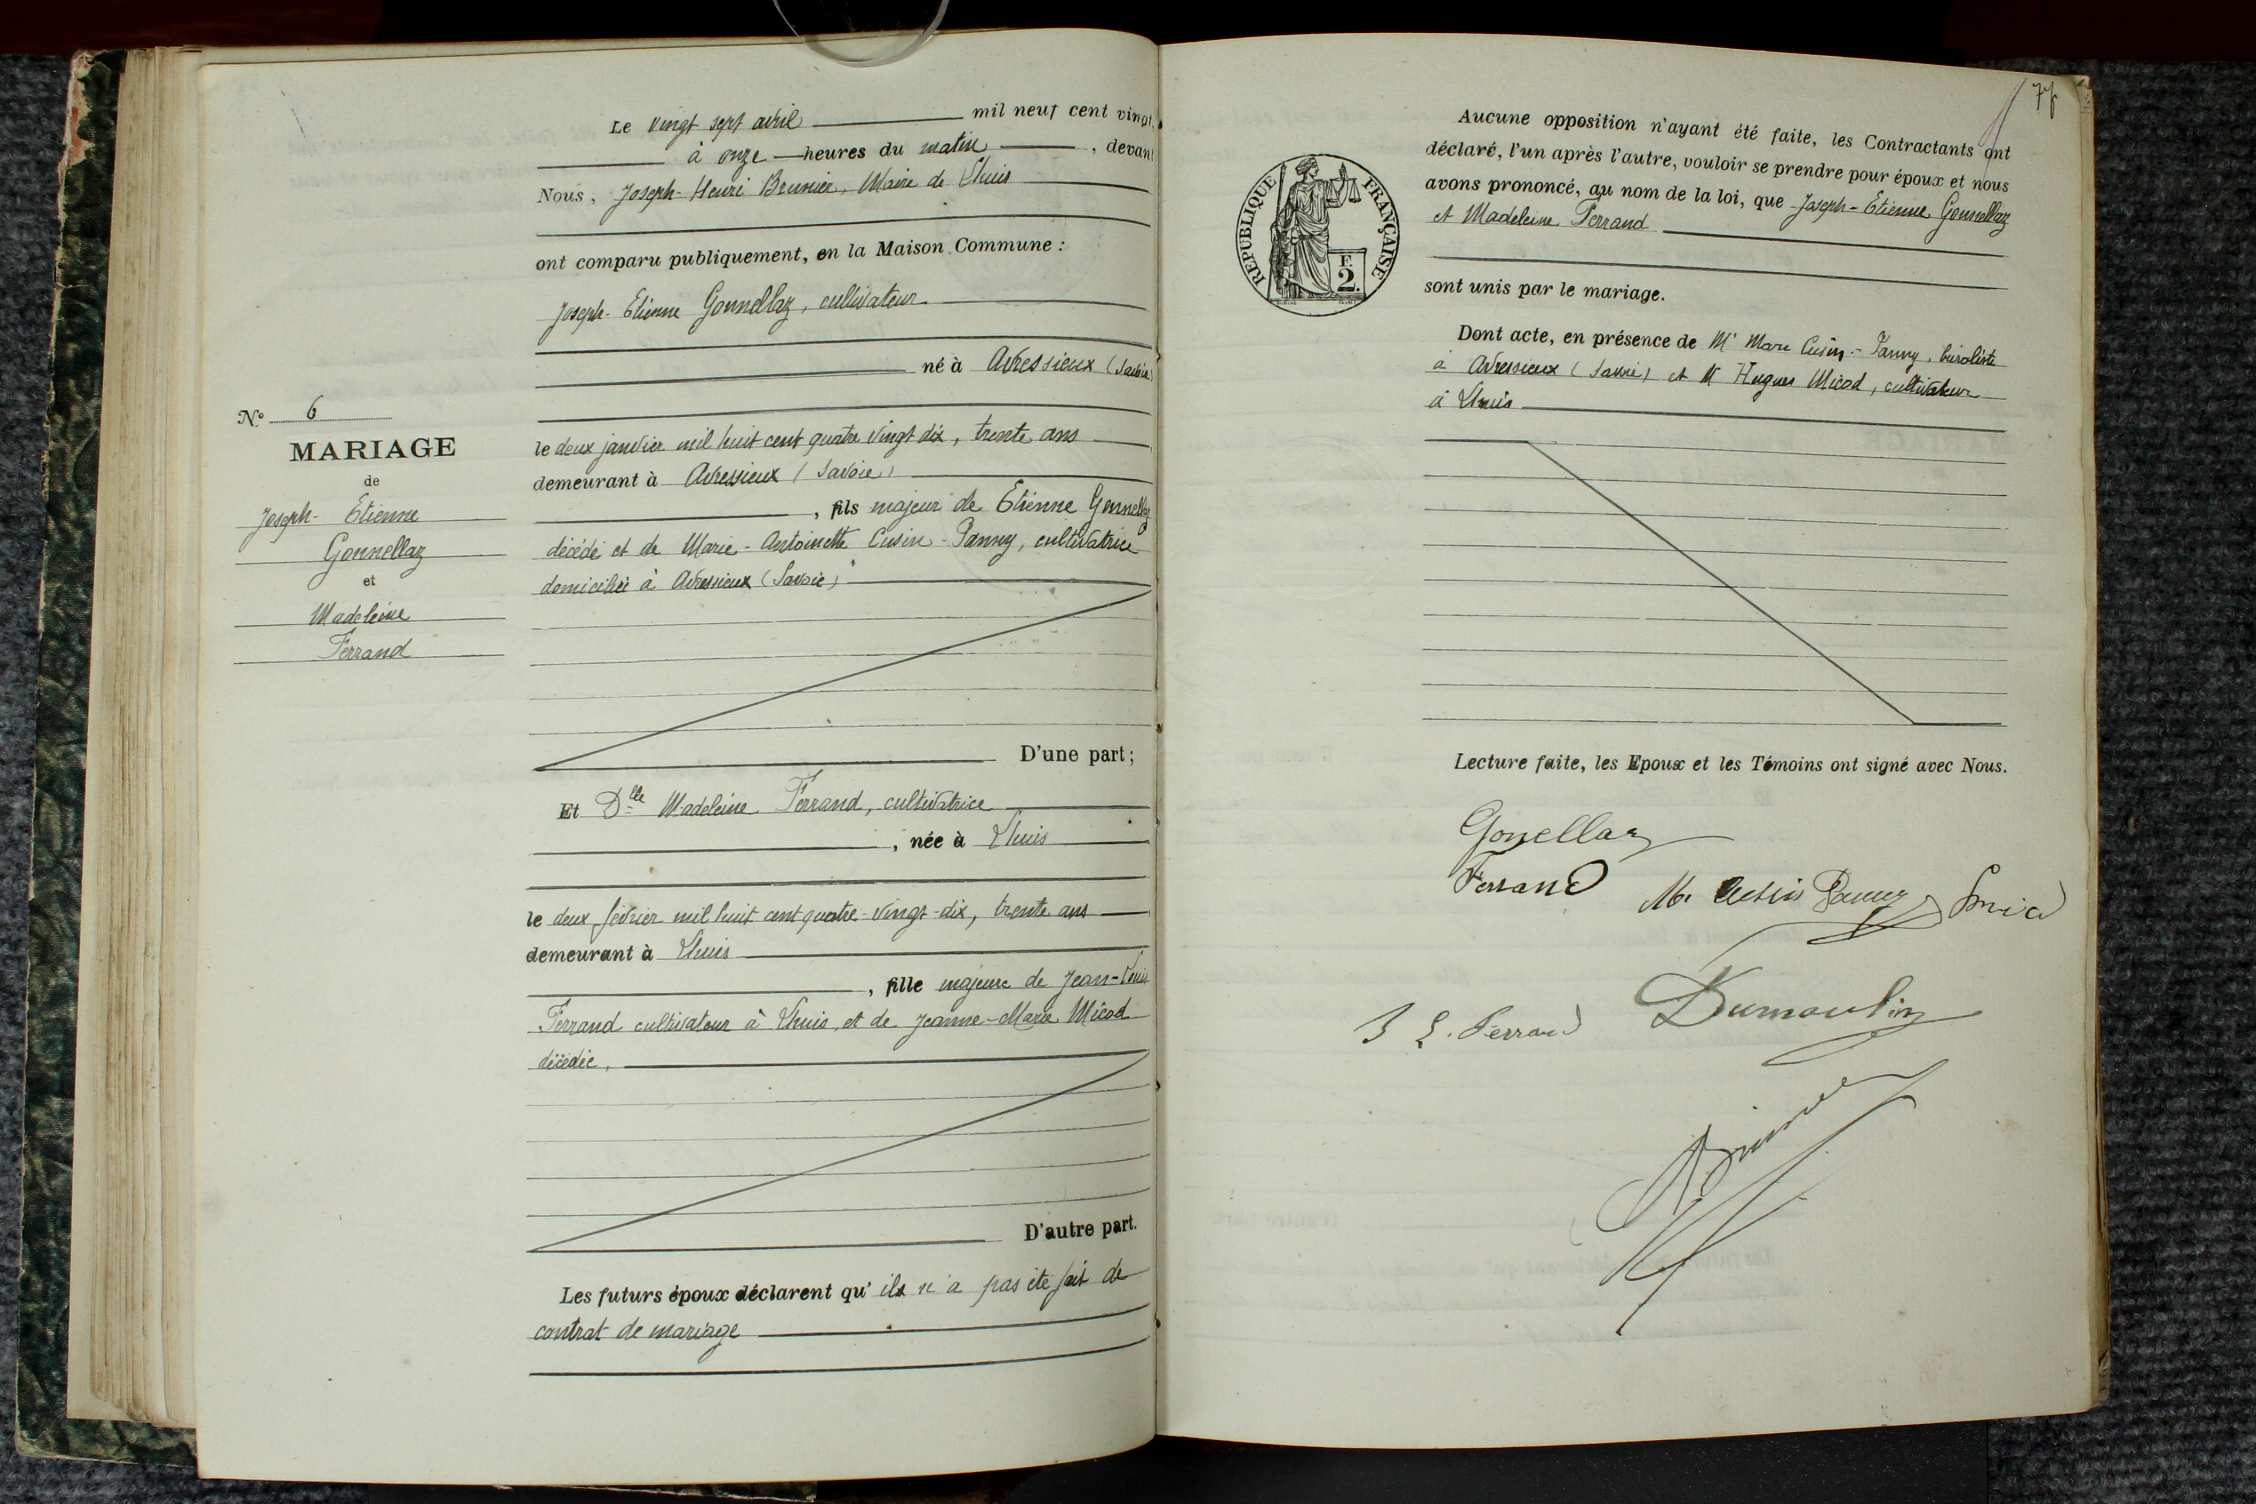 Le vingt sept avril mil neuf cent vingt
à onze heures du matin, devant
Nous, Joseph-Henri Brunier, Maire de Lhuis
ont comparu publiquement, en la Maison Commune :
Joseph-Etienne Gonnellaz, cultivateur
né à Avressieux (Savoie)
le deux janvier mil huit cent quatre vingt dix, trente ans
demeurant à Avressieux (Savoie)
, fils majeur de Etienne Gonnellaz
décédé et de Marie-Antoinette Cusin-Panny, cultivatrice
domiciliée à Avressieux (Savoie)
D'une part;
N° 6
MARIAGE
de
Joseph-Etienne
Gonnellaz
et
Madeleine
Ferrand
Et Dlle Madeleine Ferrand, cultivatrice
, née à Lhuis
le deux février mil huit cent quatre-vingt-dix, trente ans
demeurant à Lhuis
, fille majeure de Jean-Louis
Ferrand cultivateur à Lhuis, et de Jeanne-Marie Micod
décédée,
D'autre part.
Les futurs époux déclarent qu'ils n'a pas été fait de
contrat de mariage
77
Aucune opposition n'ayant été faite, les Contractants ont
déclaré, l'un après l'autre, vouloir se prendre pour époux et nous
avons prononcé, au nom de la loi, que Joseph-Etienne Gonnellaz
et Madeleine Ferrand
sont unis par le mariage.
REPUBLIQUE FRANÇAISE
F.
2.
Dont acte, en présence de Mr Marc Cusin-Panny, buraliste
à Avressieux (Savoie) et Mr Hugues Micod, cultivateur
à Lhuis
Lecture faite, les Epoux et les Témoins ont signé avec Nous.
Gonellaz
Ferrand
Mc Cusin Panny
J L. Ferrand
Dumoulin
Brunier